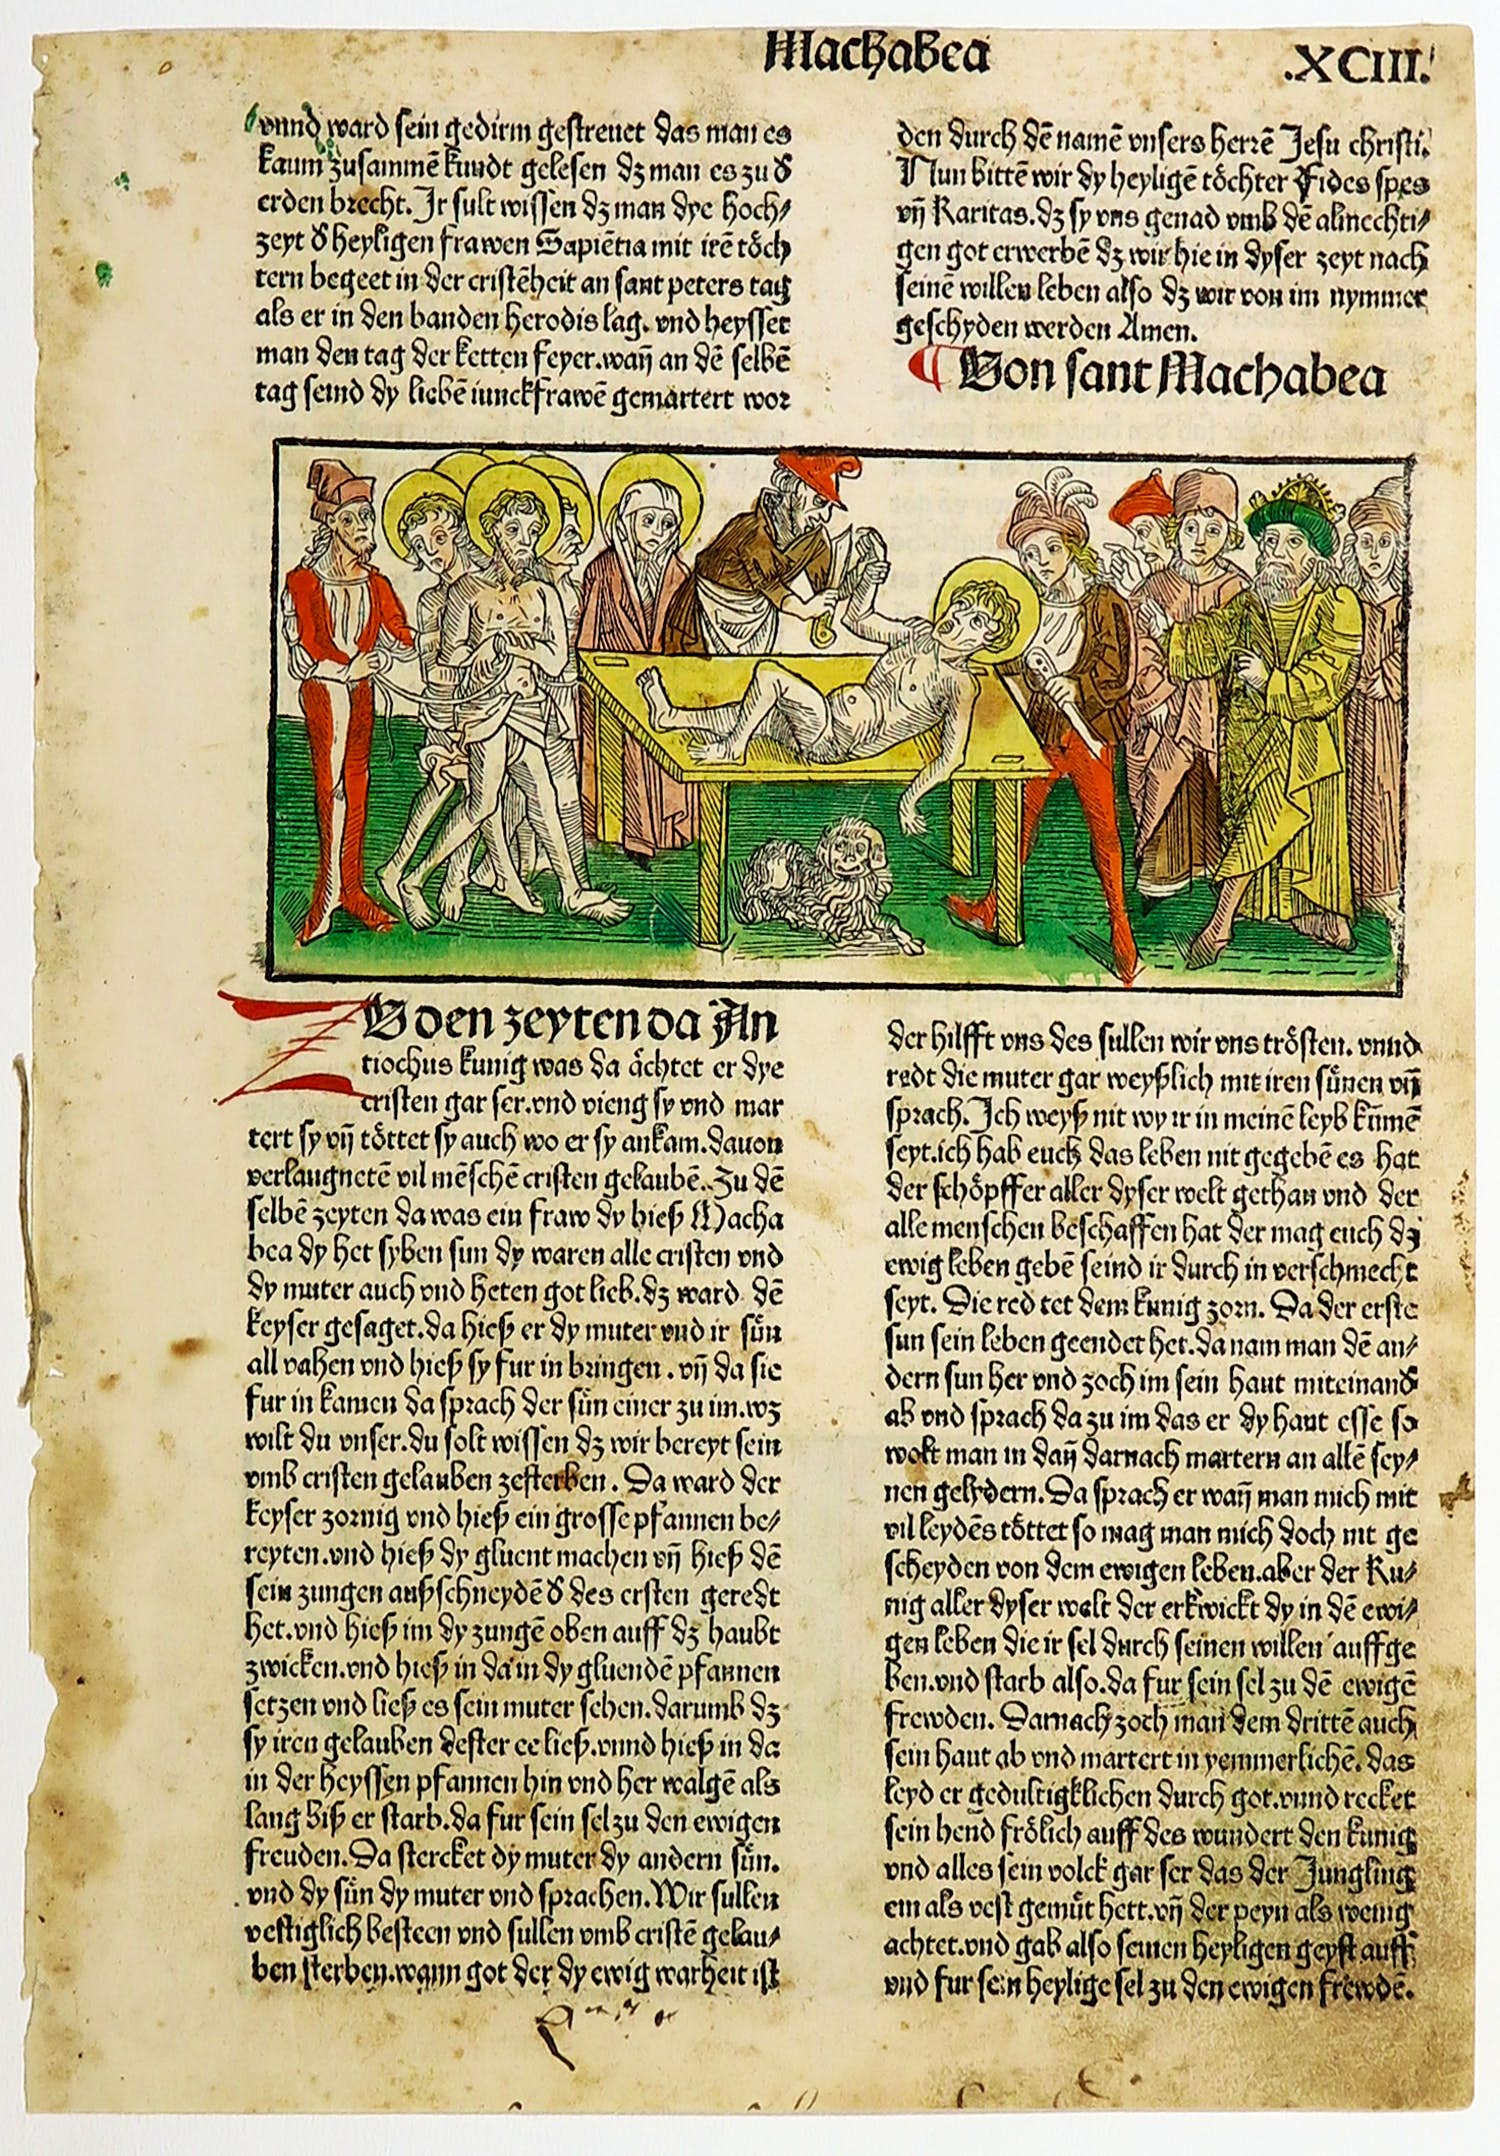 Machabea
.XCIII.
vnnd ward sein gedirm gestreuet das man es
kaum zusammē kundt gelesen dz man es zu d̕
erden brecht. Jr sult wissen dz man dye hoch⸗
zeyt d̕ heyligen frawen Sapiētia mit irē töch
tern begeet in der cristēheit an sant peters tag
als er in den banden herodis lag. vnd heysset
man den tag der ketten feyer. wañ an dē selbē
tag seind dy liebē iunckfrawē gemartert wor
den durch dē namē vnsers herrē Jesu christi.
Nun bittē wir dy heyligē töchter Fides spes
vñ Karitas. dz sy vns genad vmb dē almechti⸗
gen got erwerbē dz wir hie in dyser zeyt nach
seinē willen leben also dz wir von im nymmer
geschyden werden Amen.
Von sant Machabea
ZV den zeyten da An
tiochus kunig was da ächtet er dye
cristen gar ser. vnd vieng sy vnd mar
tert sy vñ töttet sy auch wo er sy ankam. davon
verlaugnetē vil mēschē cristen gelaubē. Zu dē
selbē zeyten da was ein fraw dy hieß Macha
bea dy het syben sun dy waren alle cristen vnd
dy muter auch vnd heten got lieb. dz ward dē
keyser gesaget. da hieß er dy muter vnd ir sün
all vahen vnd hieß sy fur in bringen. vñ da sie
fur in kamen da sprach der sün einer zu im. wz
wilt du vnser. du solt wissen dz wir bereyt sein
vmb cristen gelauben zesterben. Da ward der
keyser zornig vnd hieß ein grosse pfannen be⸗
reyten. vnd hieß dy gluent machen vñ hieß dē
sein zungen außschneydē d̕ des ersten geredt
het. vnd hieß im dy zungē oben auff dz haubt
zwicken. vnd hieß in da in dy gluendē pfannen
setzen vnd ließ es sein muter sehen. darumb dz
sy iren gelauben dester ee ließ. vnnd hieß in da
in der heyssen pfannen hin vnd her walgē als
lang biß er starb. da fur sein sel zu den ewigen
freuden. Da stercket dy muter dy andern sün.
vnd dy sün dy muter vnd sprachen. Wir sullen
vestiglich besteen vnd sullen vmb cristē gelau⸗
ben sterben. wann got der dy ewig warheit ist
der hilfft vns des sullen wir vns trösten. vnnd
redt die muter gar weyßlich mit iren sünen vñ
sprach. Jch weyß nit wy ir in meinē leyb kumē
seyt. ich hab euch das leben nit gegebē es hat
der schöpffer aller dyser welt gethan vnd der
alle menschen beschaffen hat der mag euch dz
ewig leben gebē seind ir durch in verschmecht
seyt. Die red tet dem kunig zorn. Da der erste
sun sein leben geendet het. da nam man dē an⸗
dern sun her vnd zoch im sein haut miteinand̕
ab vnd sprach da zu im das er dy haut esse so
wolt man in dañ darnach martern an allē sey⸗
nen gelydern. Da sprach er wañ man mich mit
vil leydēs töttet so mag man mich doch nit ge
scheyden von dem ewigen leben. aber der Ku⸗
nig aller dyser welt der erkwickt dy in dē ewi⸗
gen leben die ir sel durch seinen willen auffge
ben. vnd starb also. da fur sein sel zu dē ewigē
frewden. Darnach zoch man dem drittē auch
sein haut ab vnd martert in yemmerlichē. das
leyd er gedultigklichen durch got. vnnd recket
sein hend frölich auff des wundert den kunig
vnd alles sein volck gar ser das der Jungling
ein als vest gemüt hett. vñ der peyn als wenig
achtet. vnd gab also seinen heyligen geyst auff
vnd fur sein heylige sel zu den ewigen frewdē.